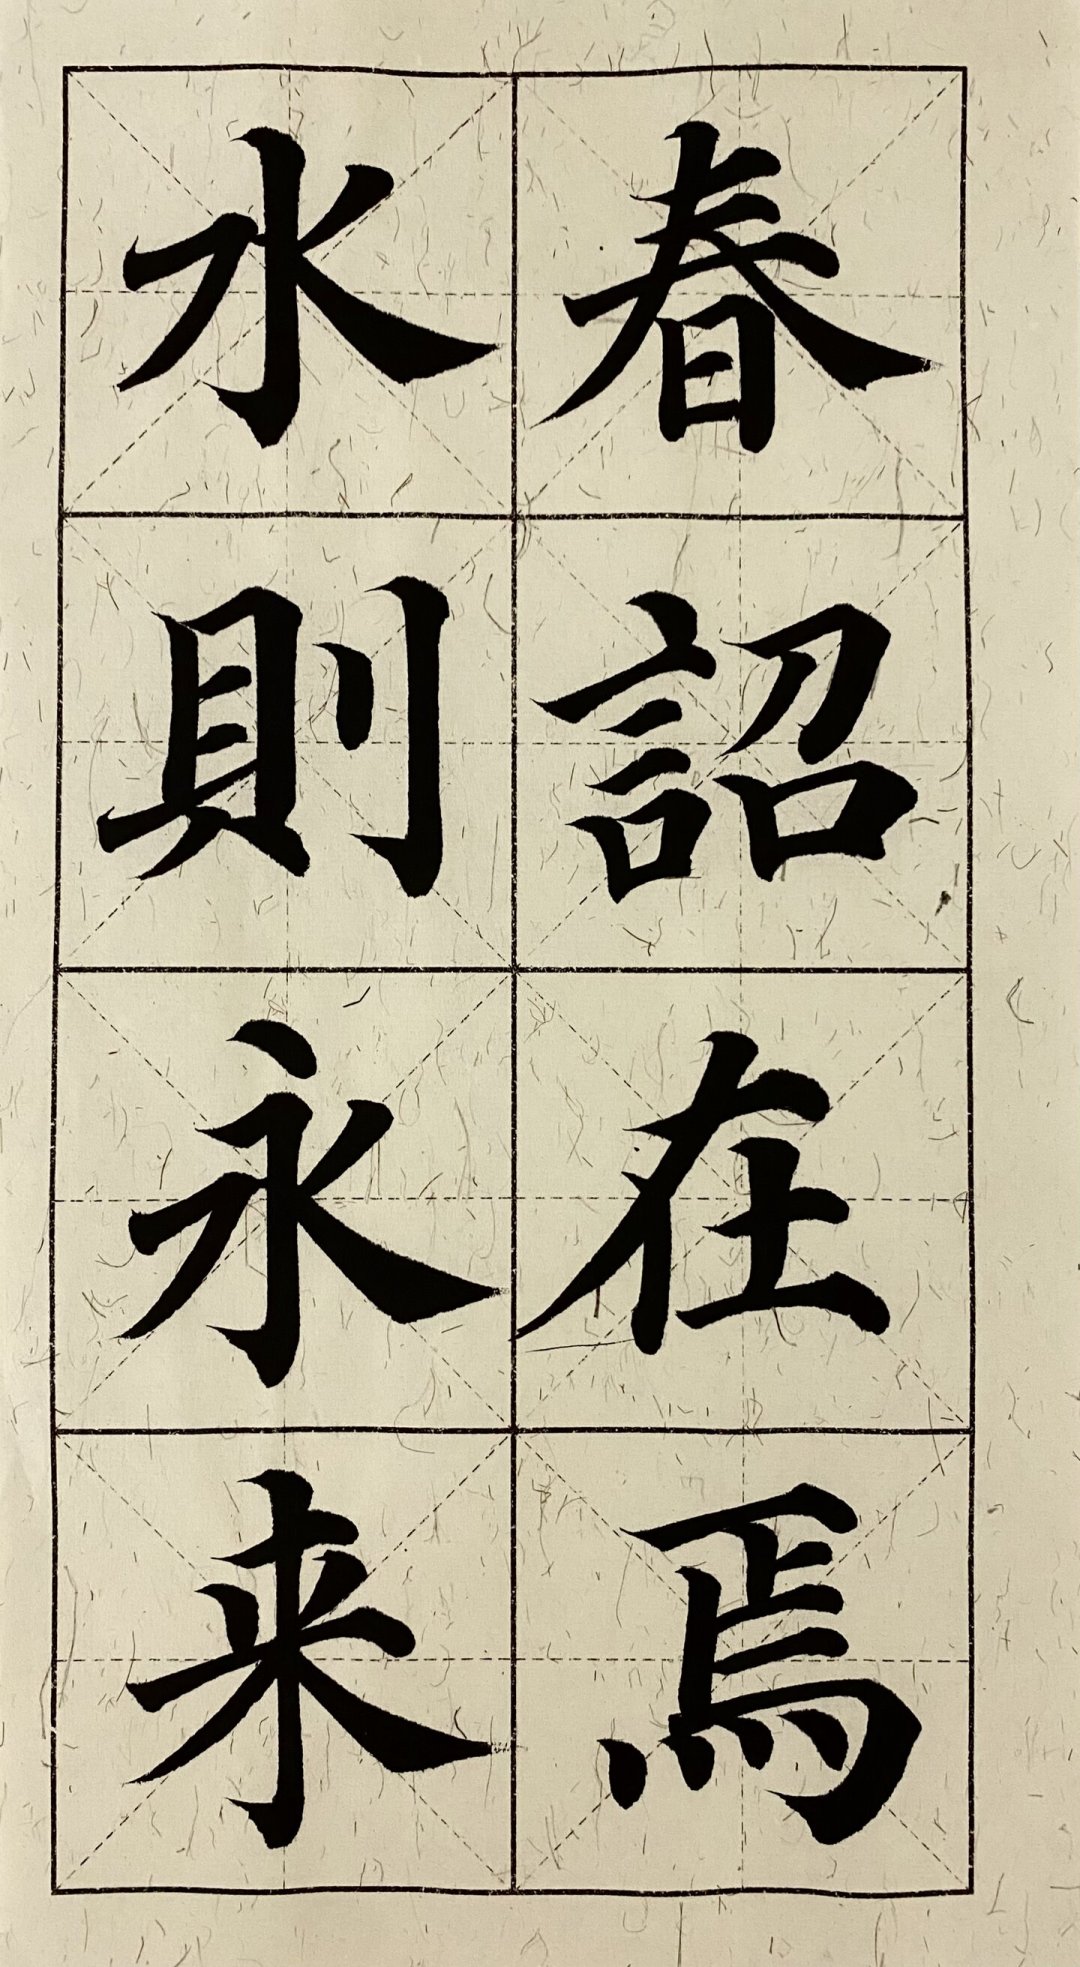 春詔在焉
水則永来